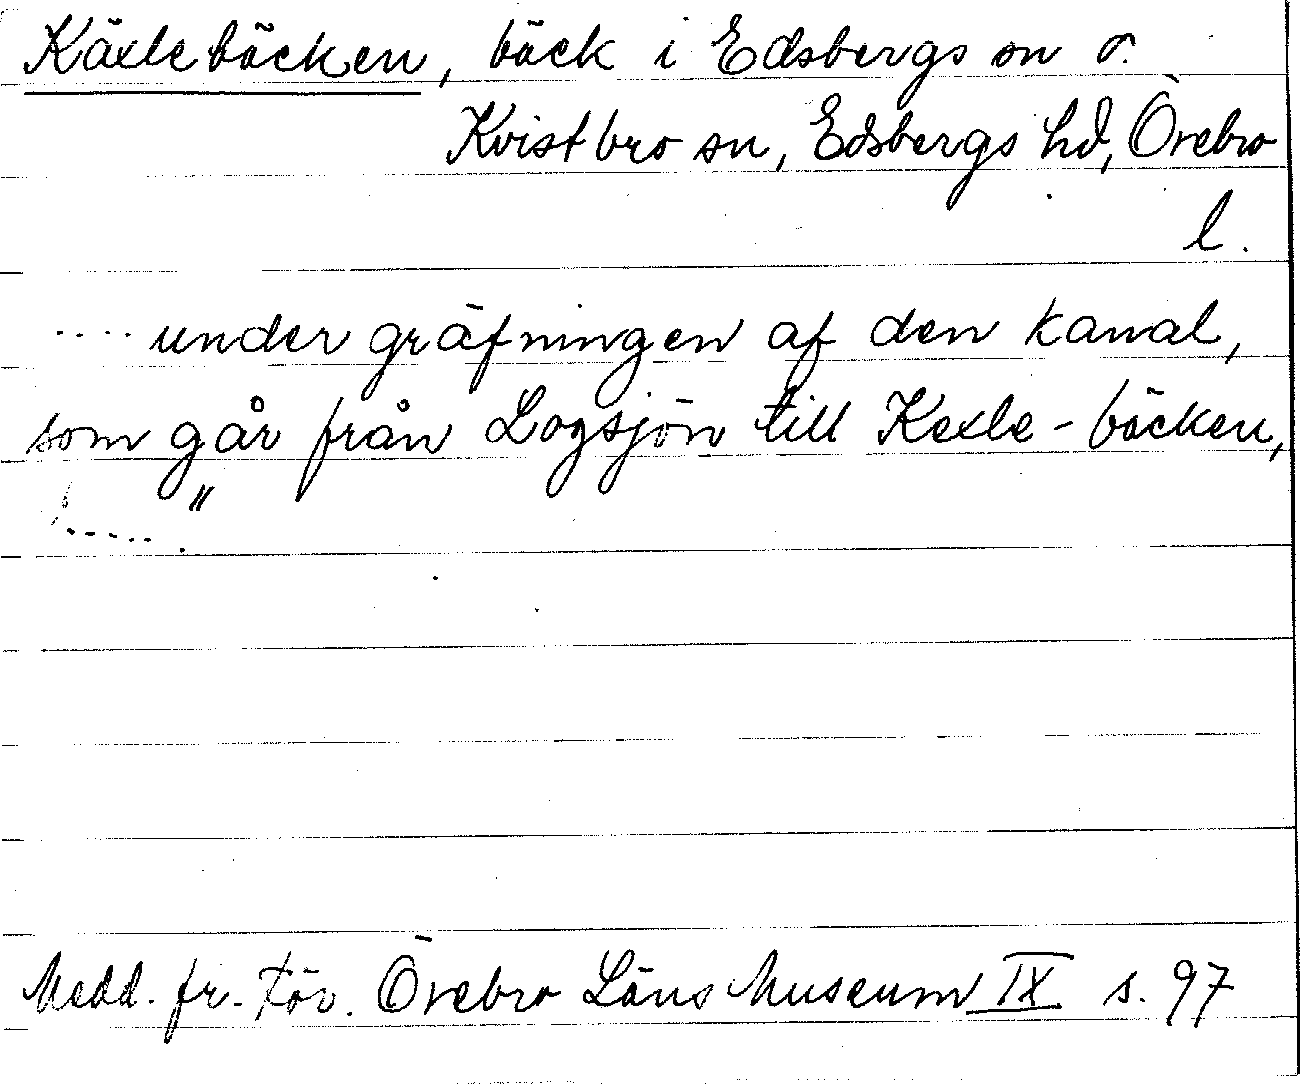 Käxlebäcken, bäck i Edsbergs sn o.
Kvistbro sn, Edsbergs hd, Örebro
l.
.... under gräfningen af den kanal,
som går från Logsjön till Kexle-bäcken,
....."
Medd. fr.För. Örebro Läns Museum IX s. 97